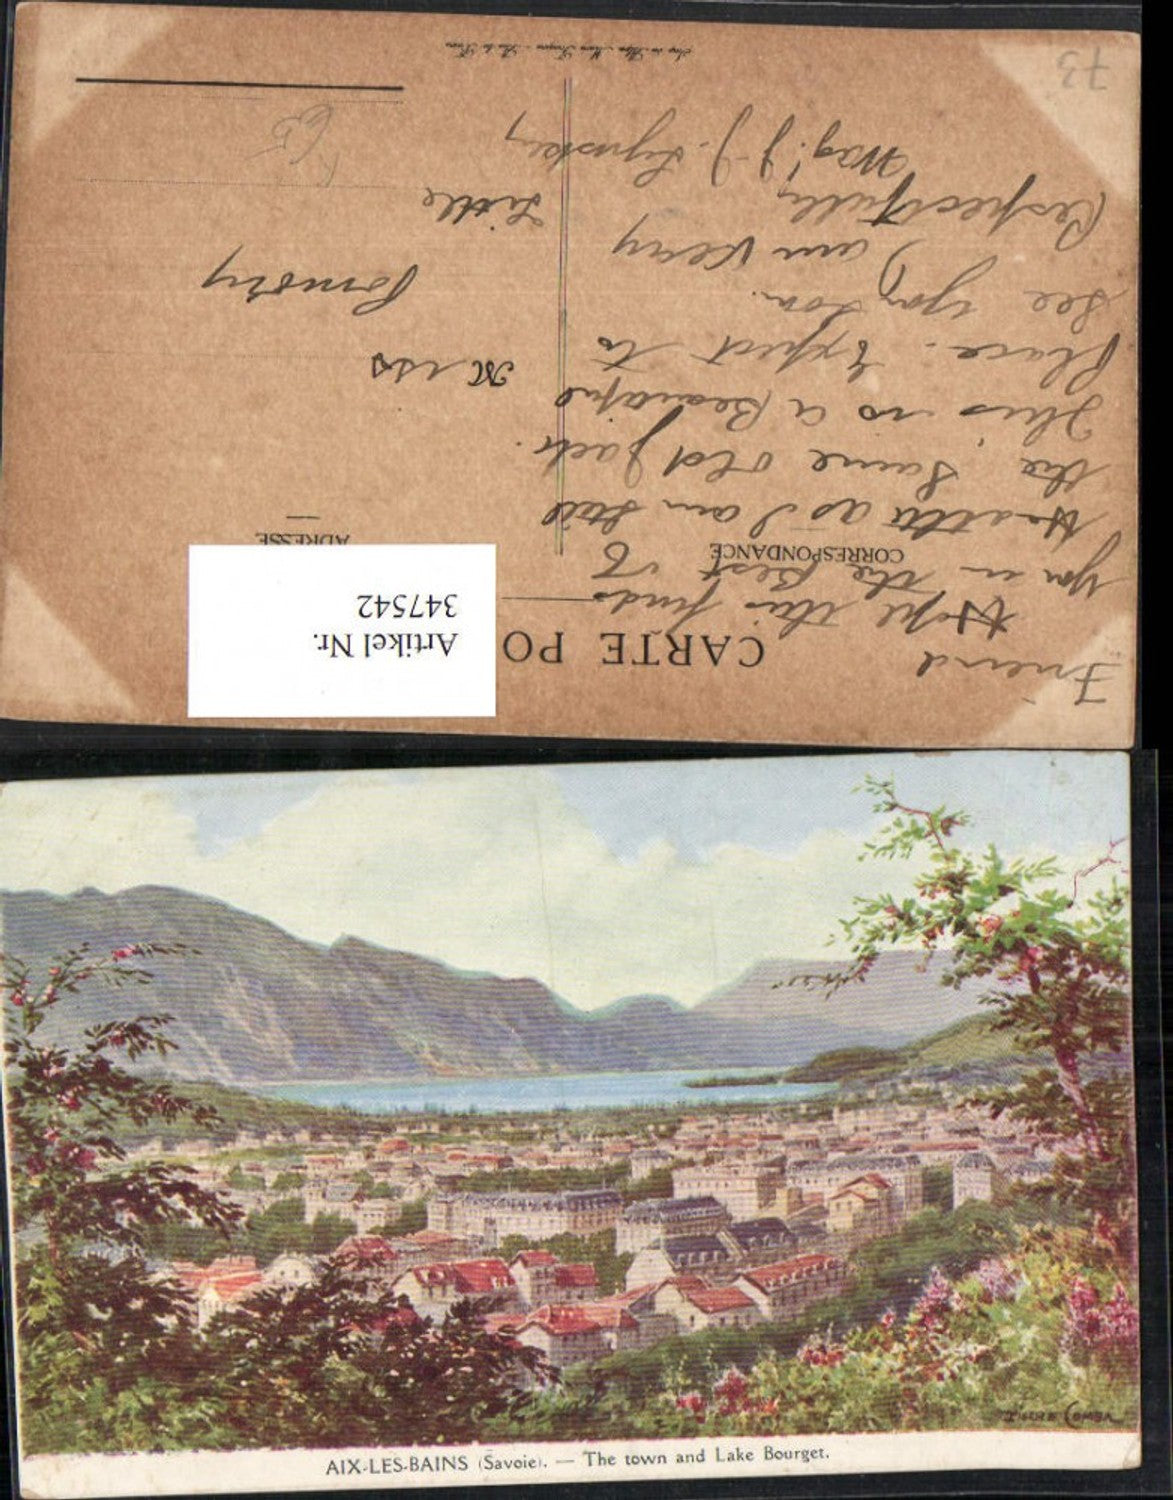 CARTE PO
CORRESPONDANCE
ADRESSE
Artikel Nr.
347542
Friend
Hope this finds
you in the Best of
Health as I am still
the same old Jack.
This is a Beautiful
Place. Expect to
see you soon.
I am very
Respectfully
Wag. J. J. Lynskey
Miss
Little
73
AIX-LES-BAINS (Savoie). — The town and Lake Bourget.
PIERRE COMBA